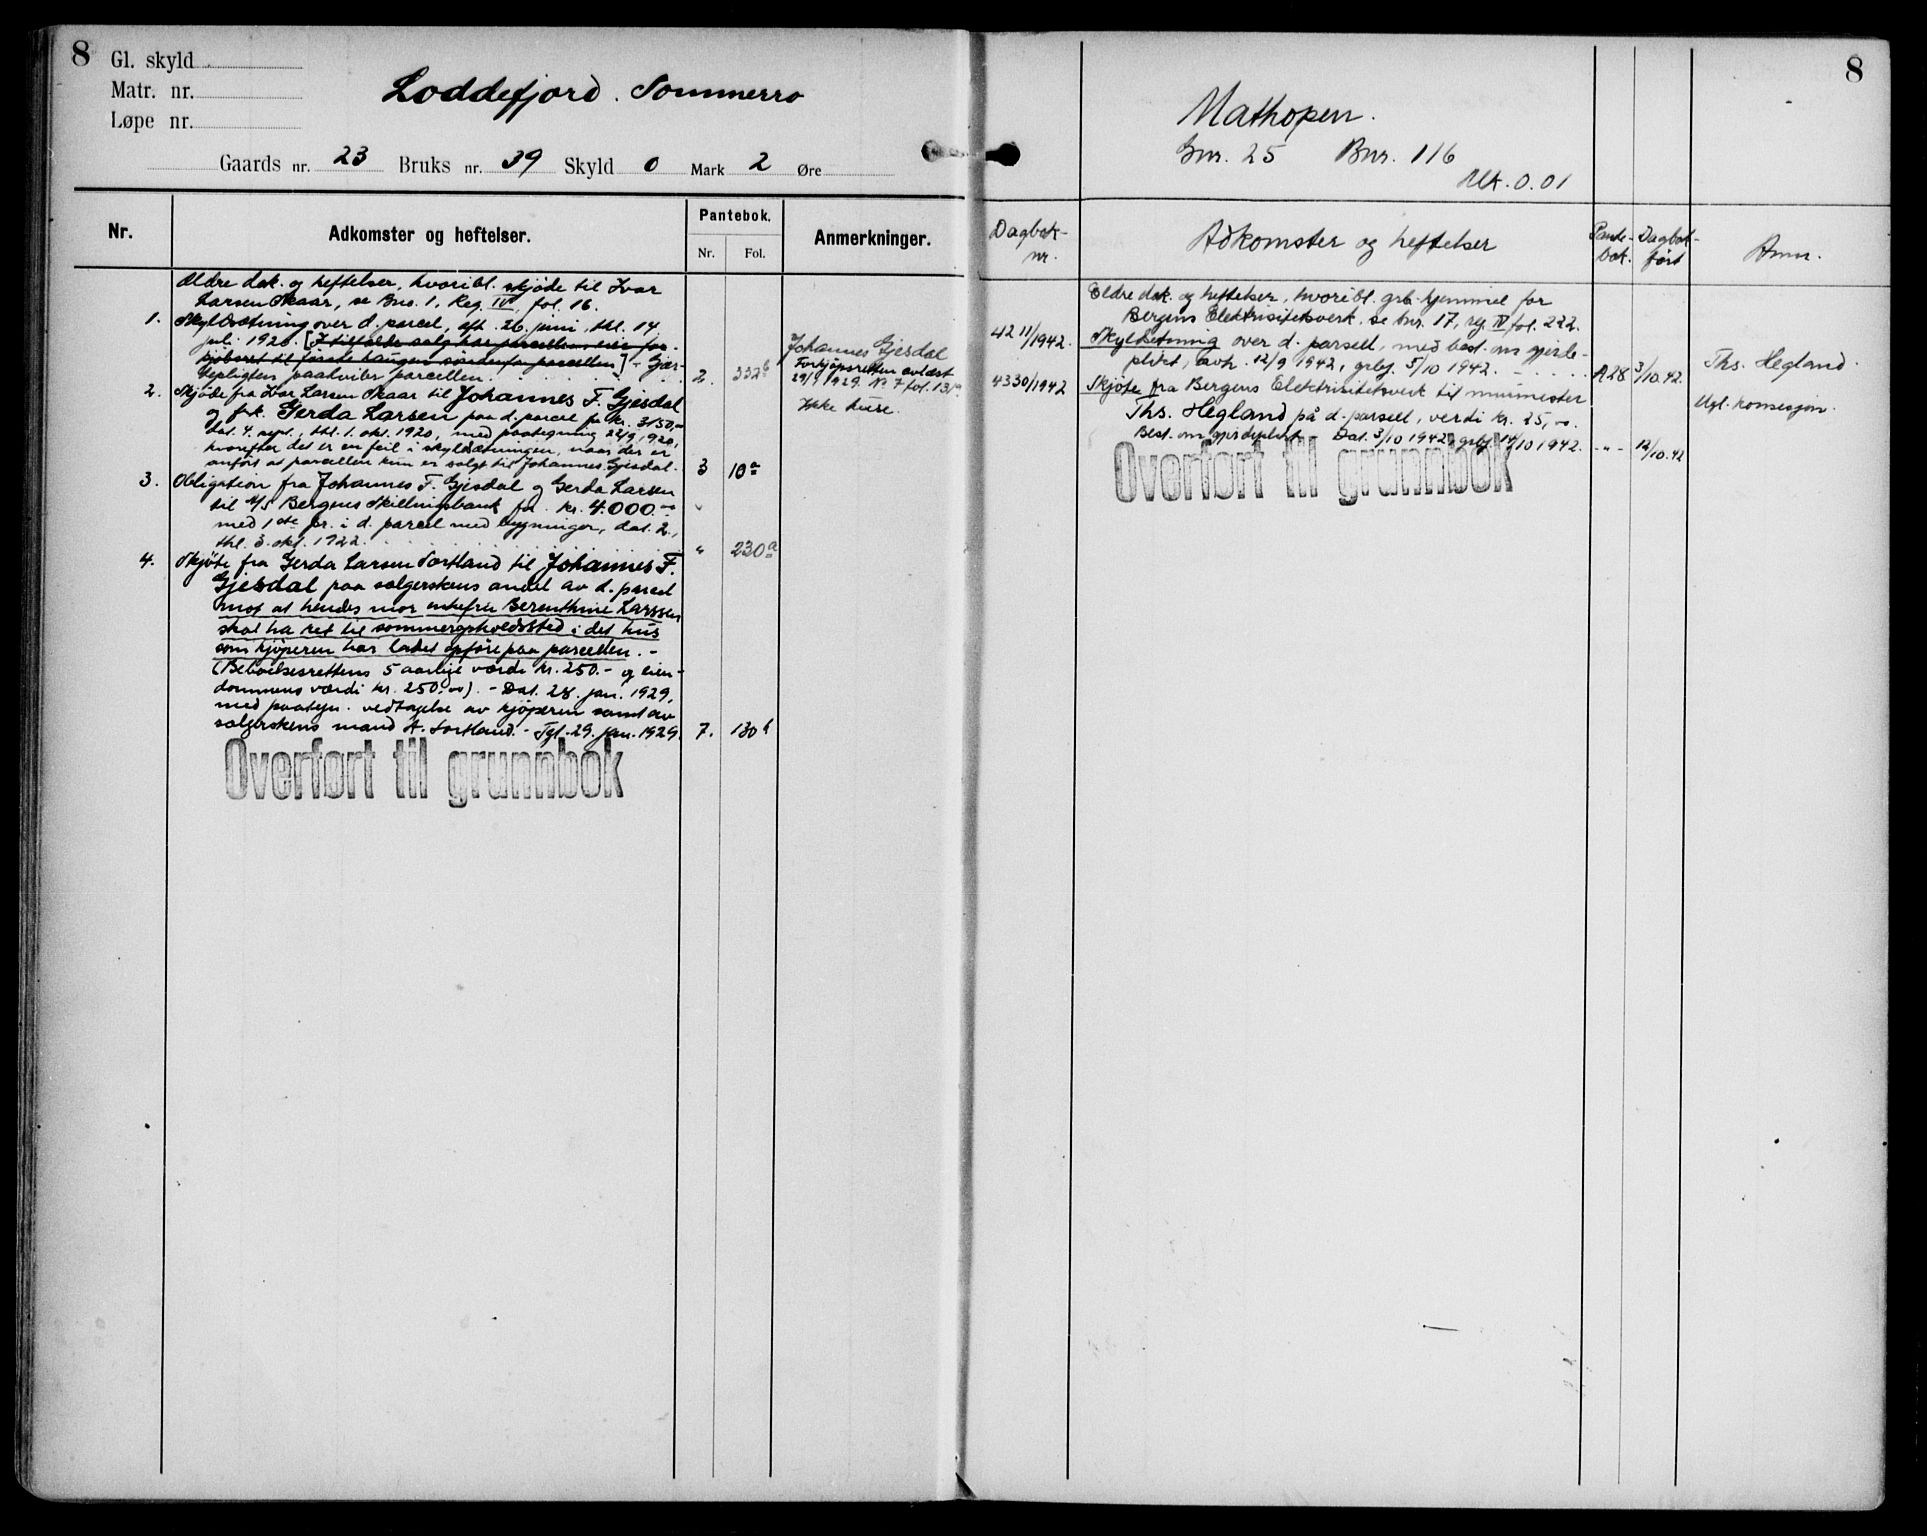 8
Gl. skyld
Matr. nr.
Løpe nr.
Loddefjord. Sommerro
Gaards nr. 23 Bruks nr. 39 Skyld 0 Mark 2 Øre
Nr. Adkomster og heftelser. Pantebok. Anmerkninger.
Nr. Fol.
Ældre dok. og heftelser, hvoribl. skjøde til Ivar
Larsen Skaar, se Bno. 1, Reg. IV, fol. 16.
1. Skyldsætning over d. parcel, aft. 26. juni, thl. 14.
juli 1920. [I tilfælde salg har parcellens eier for-
kjøbsret til første haugen søndenfor parcellen] - Gjær-
depligten paahviler parcellen. 2. 332b
2. Skjøde fra Ivar Larsen Skaar til Johannes F. Gjesdal
og frk. Gerda Larsen paa d. parcel for kr. 3150,-
dat. 4. sept., thl. 1. okt. 1920, med paategning 22/9 1920,
hvorefter det er en feil i skyldsætningen, naar der er
anført at parcellen kun er solgt til Johannes Gjesdal. 3 10a
3. Obligation fra Johannes F. Gjesdal og Gerda Larsen
til A/S Bergens Skillingsbank for kr. 4.000.-
med 1ste pr. i d. parcel med bygninger, dat. 2.,
thl. 3. okt. 1922. " 230a
4. Skjøte fra Gerda Larsen Sortland til Johannes F.
Gjesdal paa sælgerskens andel av d. parcel
mot at hendes mor enkefru Berenthine Larssen
skal ha ret til sommeropholdssted i det hus
som kjøperen har latet opføre paa parcellen. -
(Beboelsesrettens 5 aarlige værdi kr. 250.- og eien-
dommens værdi kr. 250.00). - Dat. 28. jan. 1929,
med paategn. vedtagelse av kjøperen samt av
sælgerskens mand H. Sortland. - Tgl. 29. jan. 1929. 7. 130b
Overført til grunnbok
Johannes Gjesdal
Forkjøpsretten avlæst
29/1 1929. Nr 7 fol. 131a
Ikke huse.
8
Mathopen.
Gnr. 25 Bnr. 116
Mk. 0.01
Dagbok-
nr.
Adkomster og heftelser
Pante-
bok.
Dagbok-
ført
Anm.
Eldre dok. og heftelser, hvoribl. grb. hjemmel for
Bergens Elektrisitetsverk, se bnr. 17, reg. IV fol. 222.
4211/1942. Skyldsetning over d. parsell, med best. om gjerde-
plikt, avh. 12/9 1942, grbf. 5/10 1942. A28 3/10.42.
4330/1942 Skjøte fra Bergens Elektrisitetsverk til murmester
Ths. Hegland på d. parsell, verdi kr. 25,00.
Best. om gjerdeplikt. Dat. 3/10 1942, grbf. 14/10 1942. - " - 12/10.42
Overført til grunnbok
Ths. Hegland.
Ugl. konsesjon.